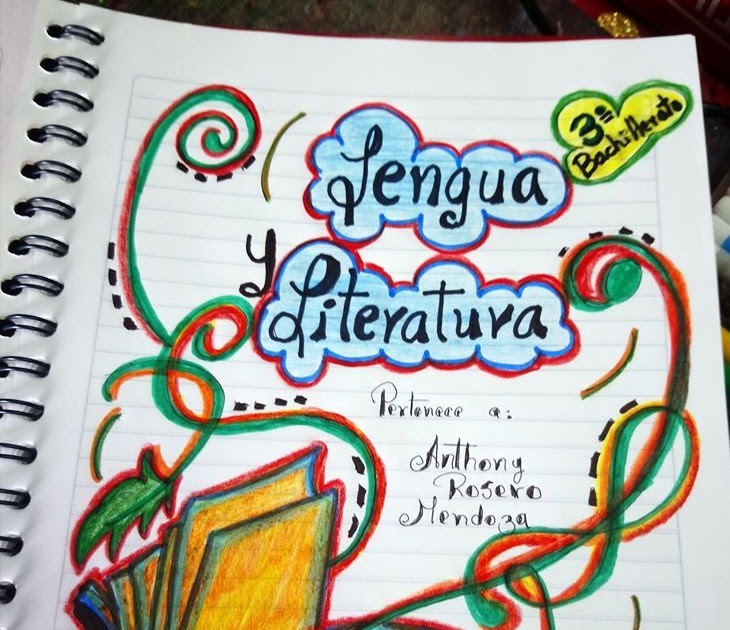 3º
Bachillerato
Lengua
y
Literatura
Pertenece a:
Anthony
Rosero
Mendoza